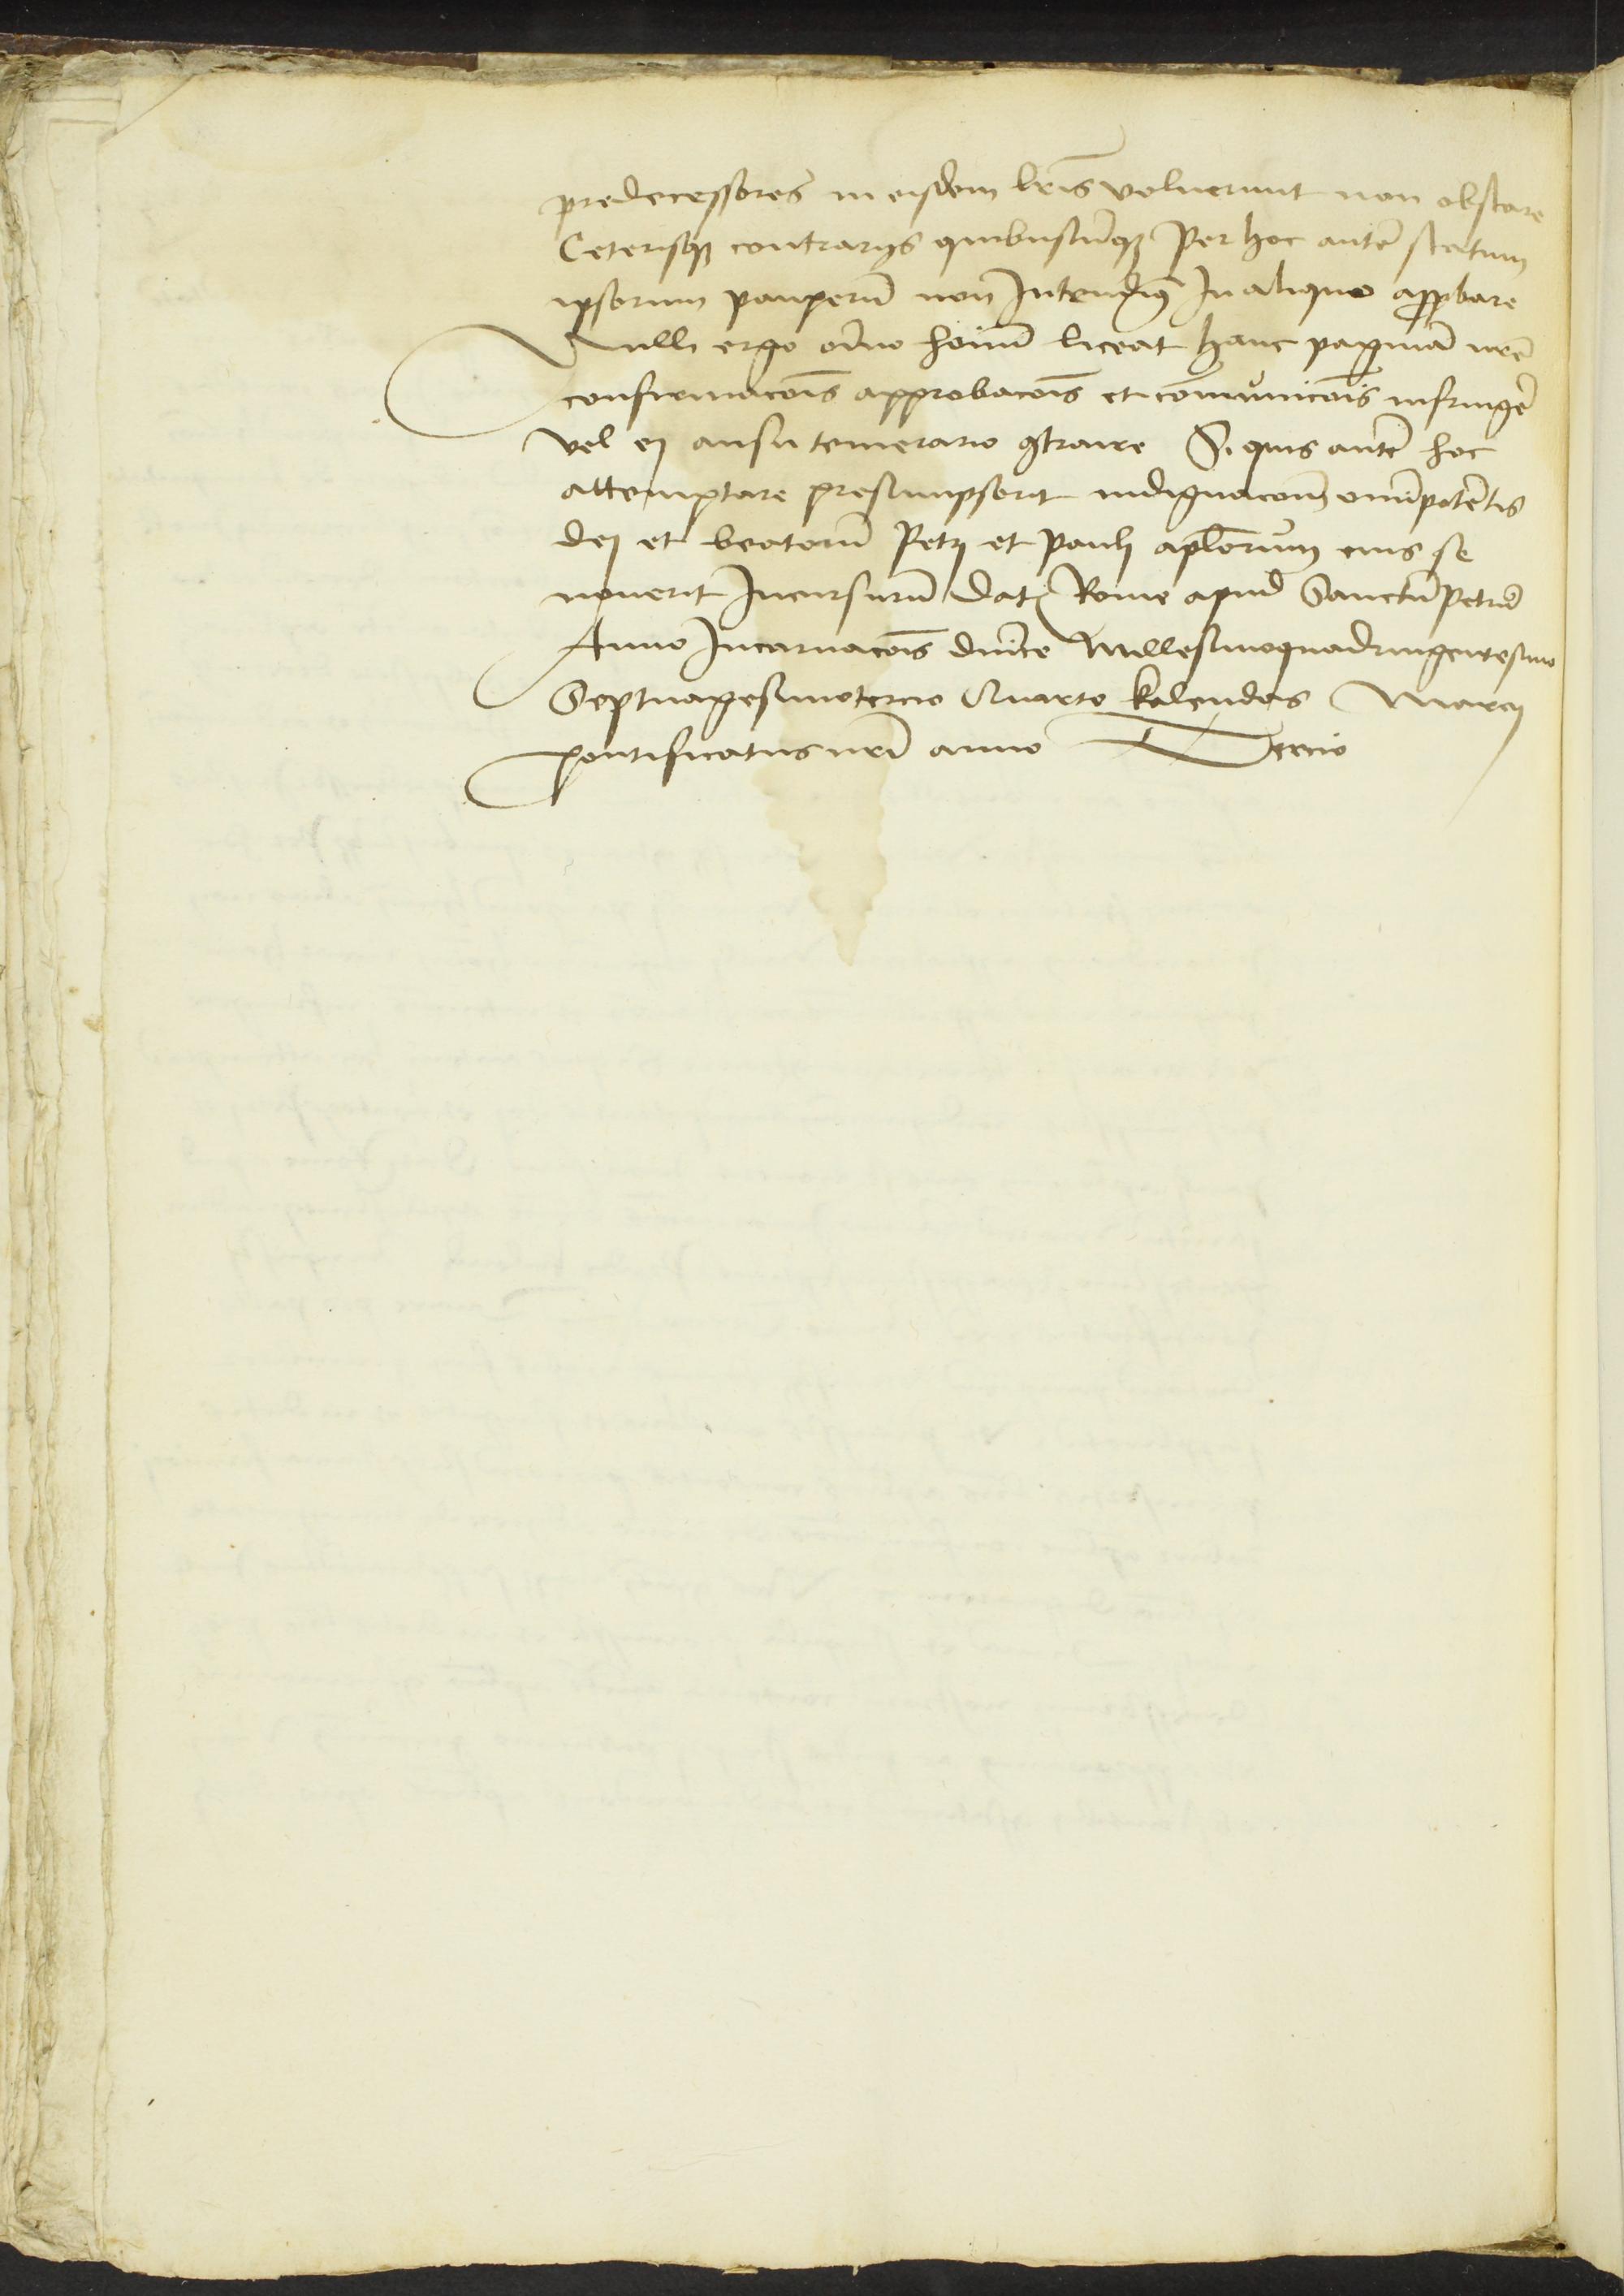 predecessores in eisdem lr̃is voluerunt non obstare
Ceterisqꝫ contrarijs quibuscũqꝫ Per hoc autẽ statum
ipsorum pauperũ non Intendimꝰ In aliquo apꝓbare
Nulli ergo oĩno hoĩum liceat hanc paginã nr̃e
confirmacõis approbacõis et cõmunicõis infringẽ
vel ej ausu temerario ꝯtraire Si quis autẽ hoc
attemptare presumpserit indignacõm om̃ipotẽtis
dej et beatorũ Petrj et Paulj apl̃orum eius se
nouerit Incursurũ Dat̃ Rome apud Sanctũ Petrũ
Anno Incarnacõis dñice Millesimoquadringentesimo
Septuagesimotercio Quarto kalendas Marcij
pontificatus nr̃i anno Tercio